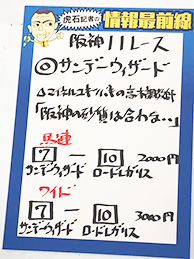 虎石記者の
情報最前線
阪神11レース
◎サンデーウィザード
「阪神の砂質は合わ…」
馬連
7 ― 10 2000円
サンデーウィザード ロードレガリス
ワイド
7 ― 10 3000円
サンデーウィザード ロードレガリス